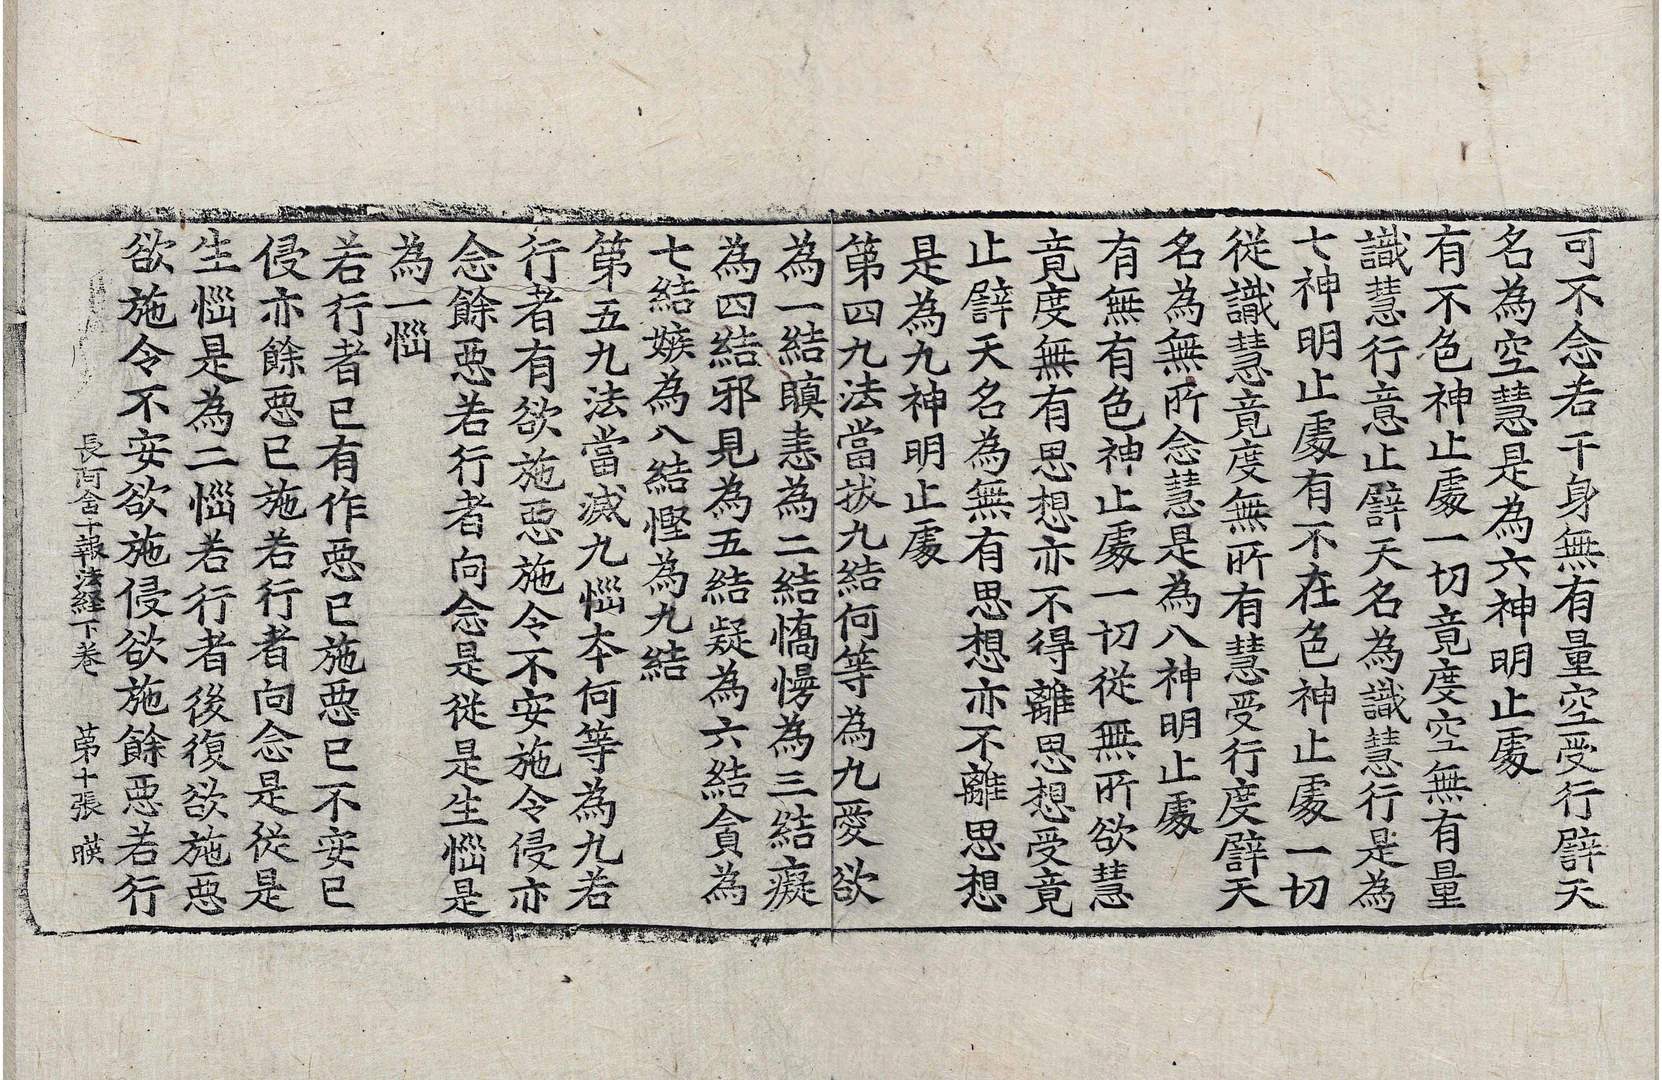 可不念若干身無有量空受行譬天
名為空慧是為六神明止處
有不色神止處一切竟度空無有量
識慧行意止譬天名為識慧行是為
七神明止處有不在色神止處一切
從識慧竟度無所有慧受行度譬天
名為無所念慧是為八神明止處
有無有色神止處一切從無所欲慧
竟度無有思想亦不得離思想受竟
止譬天名為無有思想亦不離思想
是為九神明止處
第四九法當拔九結何等為九愛欲
為一結瞋恚為二結憍慢為三結癡
為四結邪見為五結疑為六結貪為
七結嫉為八結慳為九結
第五九法當滅九惱本何等為九若
行者有欲施惡施令不安施令侵亦
念餘惡若行者向念是從是生惱是
為一惱
若行者已有作惡已施惡已不安已
侵亦餘惡已施若行者向念是從是
生惱是為二惱若行者後復欲施惡
欲施令不安欲施侵欲施餘惡若行
長阿含十報法経下巻 第十張 暎